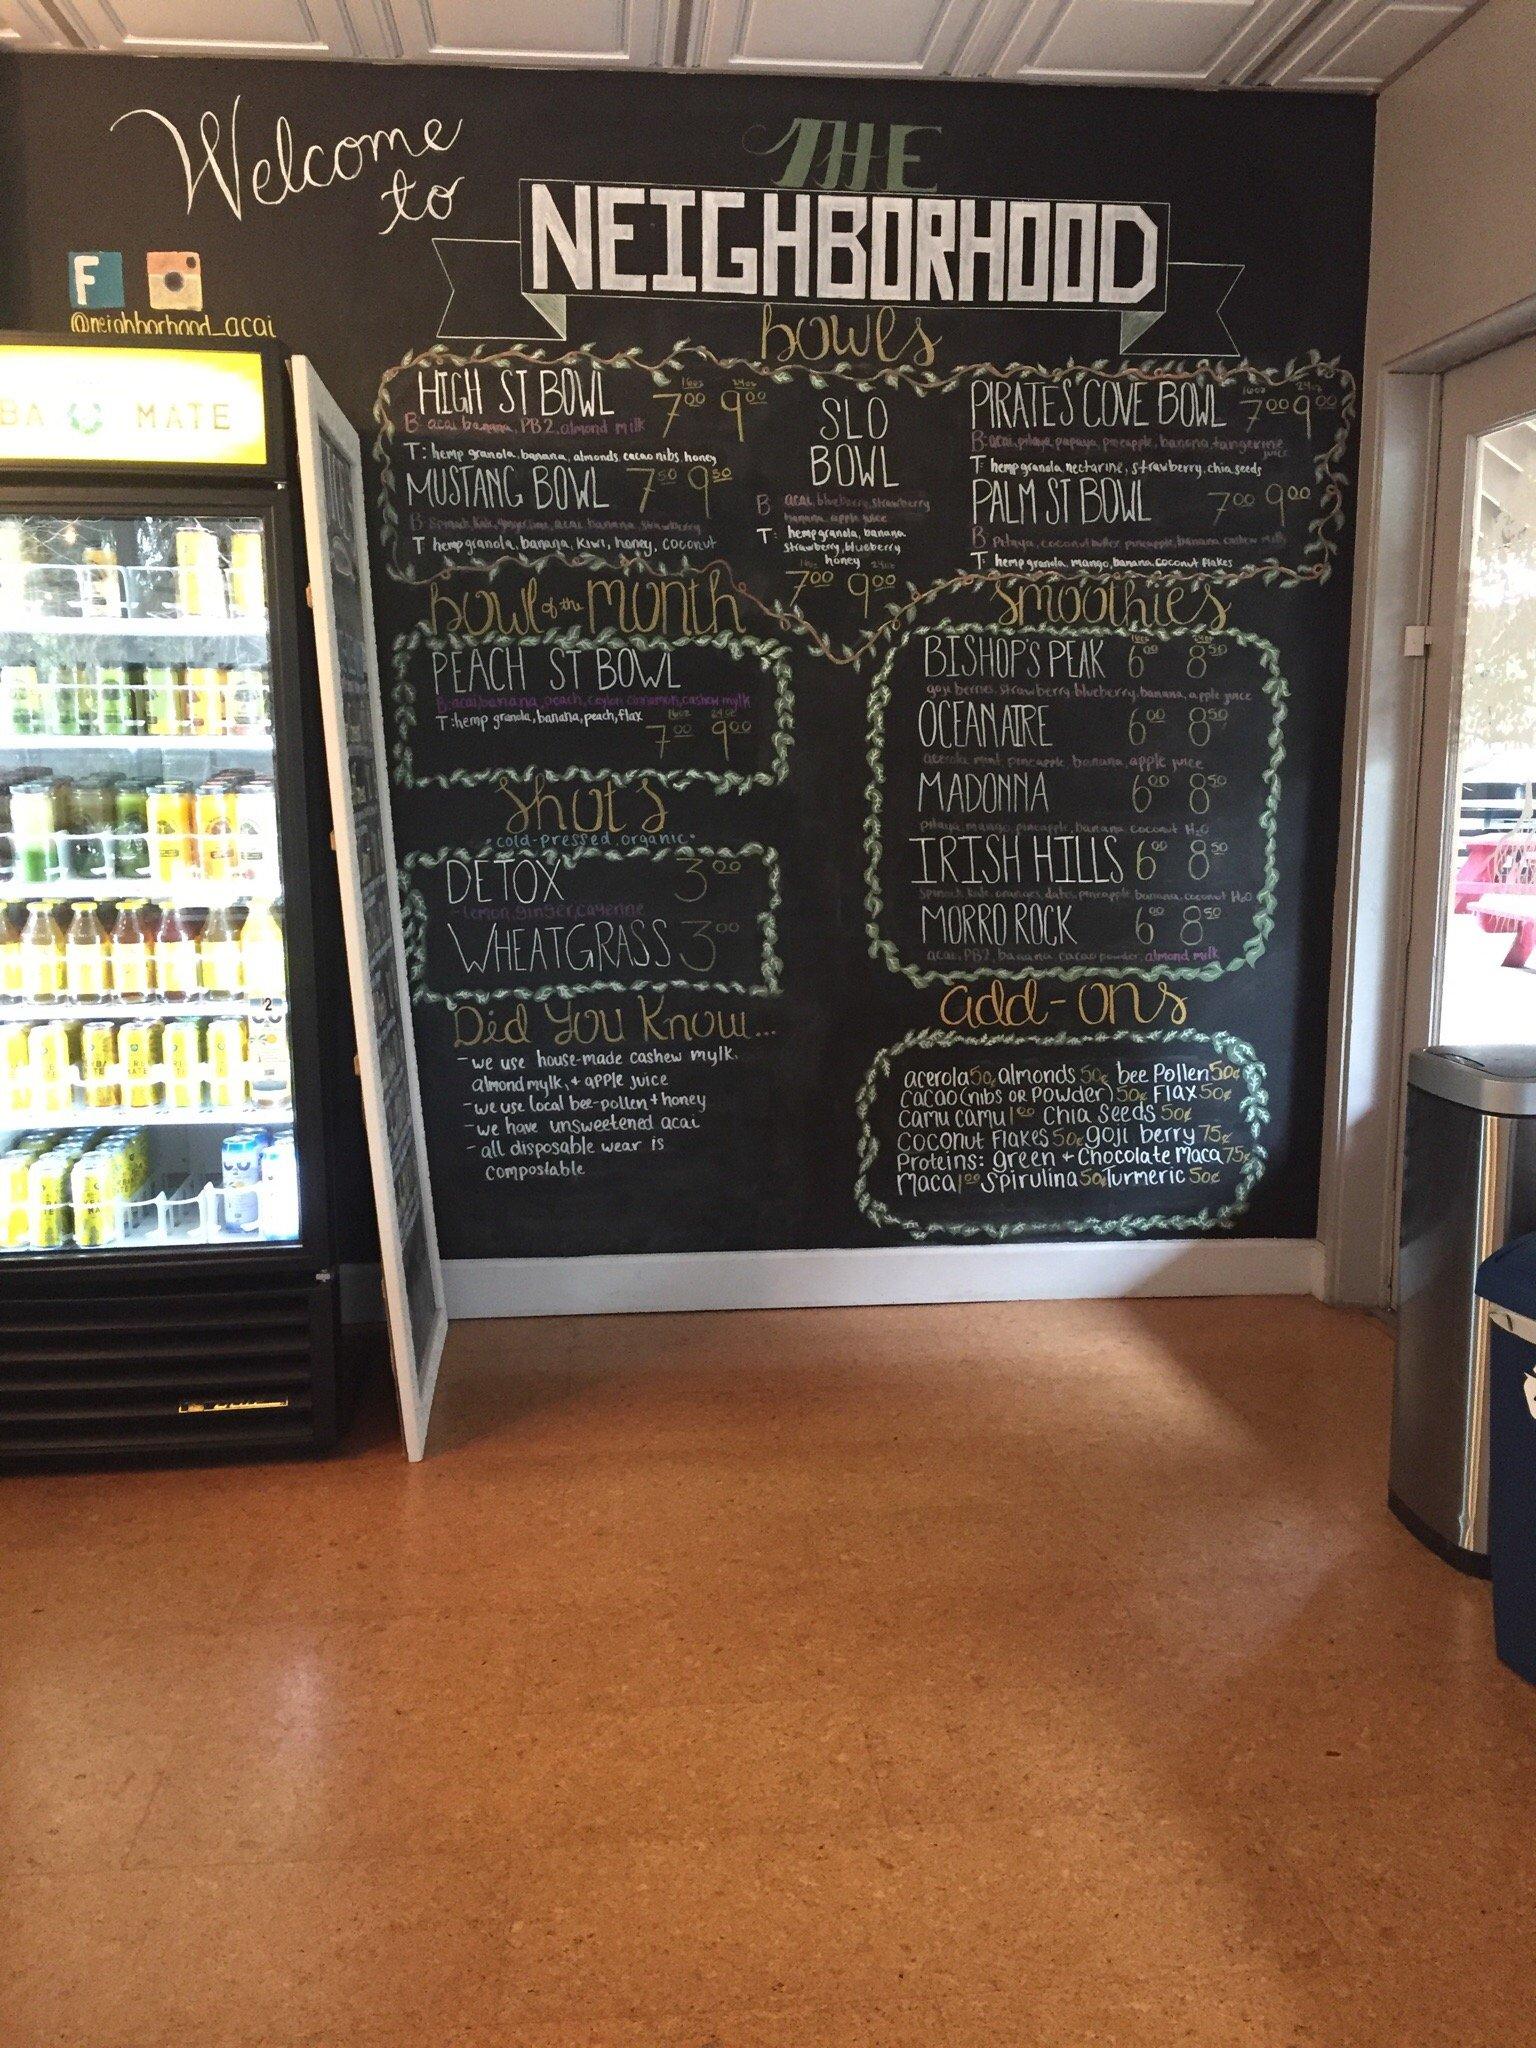 Welcome
to
THE
NEIGHBORHOOD
F
@neighborhood_acai
BA MATE
Bowls
HIGH ST BOWL 16oz 7.00 24oz 9.00
B: acai, banana, PB2, almond milk
T: hemp granola, banana, almonds, cacao nibs, honey
MUSTANG BOWL 7.50 9.50
B: spinach, kale, ginger, acai, banana, strawberry
T hemp granola, banana, kiwi, honey, coconut
SLO
BOWL
B acai, blueberry, strawberry
banana, apple juice
T: hemp granola, banana,
strawberry, blueberry
honey
16oz 7.00 24oz 9.00
PIRATES COVE BOWL 16oz 7.00 24oz 9.00
B: acai, pitaya, papaya, pineapple, banana, tangerine
juice
T hemp granola, nectarine, strawberry, chia seeds
PALM ST BOWL 7.00 9.00
B pitaya, coconut butter, pineapple, banana, cashew mylk
T: hemp granola, mango, banana, coconut flakes
Bowl of the Month
PEACH ST BOWL
B: acai, banana, peach, ceylon cinnamon, cashew mylk
T: hemp granola, banana, peach, flax
16oz 7.00 24oz 9.00
Shots
• cold-pressed, organic •
DETOX 3.00
-lemon, ginger, cayenne
WHEATGRASS 3.00
Did You Know...
- we use house-made cashew mylk,
almond mylk, + apple juice
- we use local bee-pollen + honey
- we have unsweetened acai
- all disposable wear is
compostable
Smoothies
BISHOP'S PEAK 16oz 6.00 24oz 8.50
goji berries, strawberry, blueberry, banana, apple juice
OCEANAIRE 6.00 8.50
acerola, mint, pineapple, banana, apple juice
MADONNA 6.00 8.50
pitaya, mango, pineapple, banana, coconut H2O
IRISH HILLS 6.00 8.50
spinach, kale, oranges, dates, pineapple, banana, coconut H2O
MORRO ROCK 6.00 8.50
acai, PB2, banana, cacao powder, almond milk
add-ons
acerola 50¢ almonds 50¢ bee Pollen 50¢
cacao (nibs or powder) 50¢ Flax 50¢
camu camu 1.00 chia seeds 50¢
coconut flakes 50¢ goji berry 75¢
Proteins: green + chocolate maca 75¢
Maca 1.00 spirulina 50¢ Turmeric 50¢